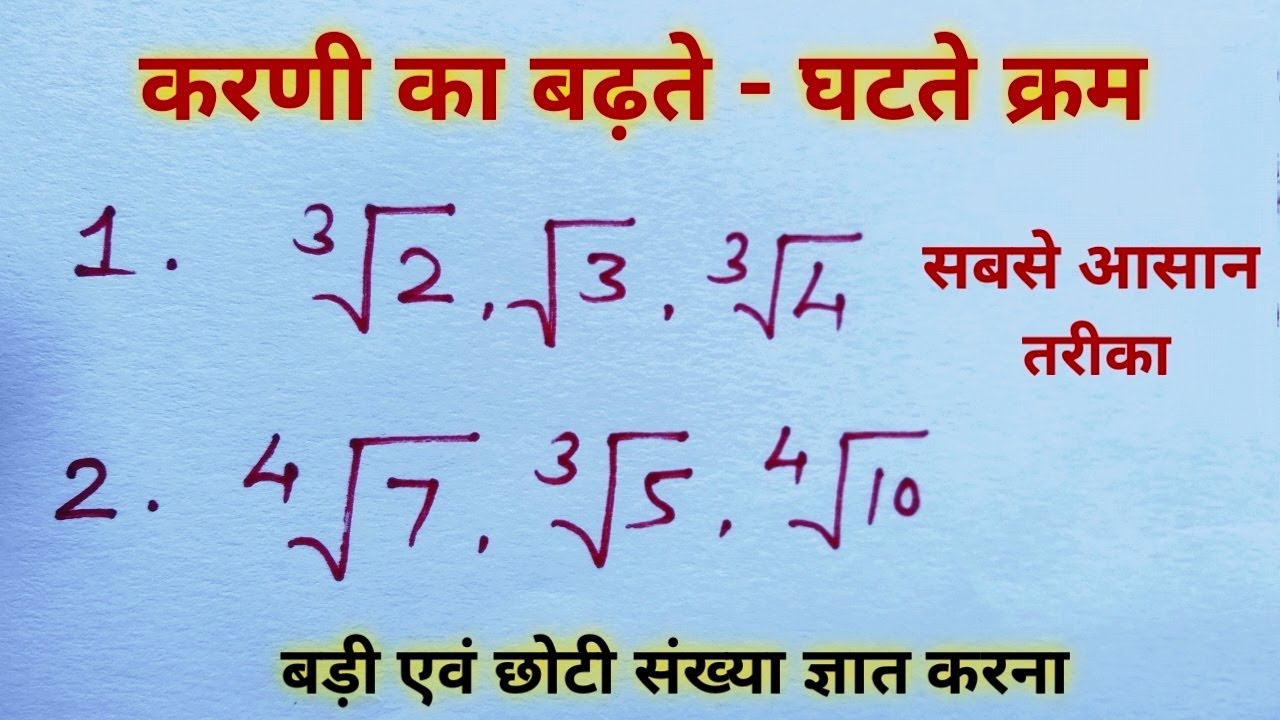 करणी का बढ़ते - घटते क्रम
1. ∛2, √3, ∛4
सबसे आसान
तरीका
2. ∜7, ∛5, ∜10
बड़ी एवं छोटी संख्या ज्ञात करना